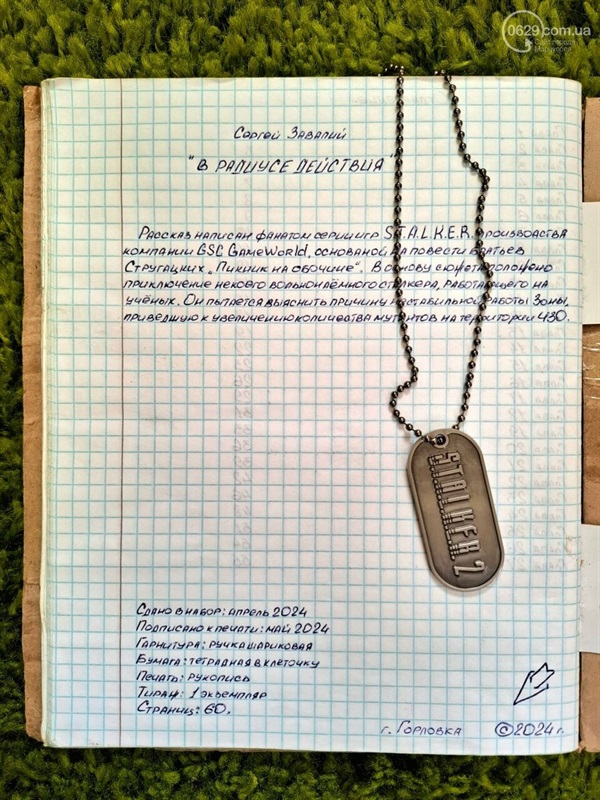 0629.com.ua
Сергей Завалий
"В РАДИУСЕ ДЕЙСТВИЯ"
Рассказ написан фанатом серии игр S.T.A.L.K.E.R. производства
компании GSC GameWorld, основаной на повести братьев
Стругацких „Пикник на обочине". В основу сюжета положено
приключение некоего вольнонаёмного сталкера, работающего на
учёных. Он пытается выяснить причину нестабильной работы Зоны,
приведшую к увеличению количества мутантов на территории ЧЗО.
S.T.A.L.K.E.R. 2
Сдано в набор: апрель 2024
Подписано к печати: май 2024
Гарнитура: ручка шариковая
Бумага: тетрадная в клеточку
Печать: рукопись
Тираж: 1 экземпляр
Страниц: 60.
г. Горловка ©2024 г.